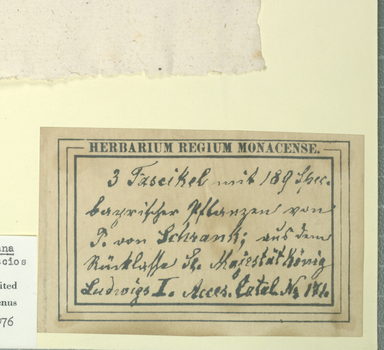 HERBARIUM REGIUM MONACENSE.
3 Fascikel mit 189 Spec.
bayrischer Pflanzen von
P. von Schrank; aus dem
Rücklasse Sr. Majestät König
Ludwigs I. Acces. Catal. No
na
scios
ited
enus
976